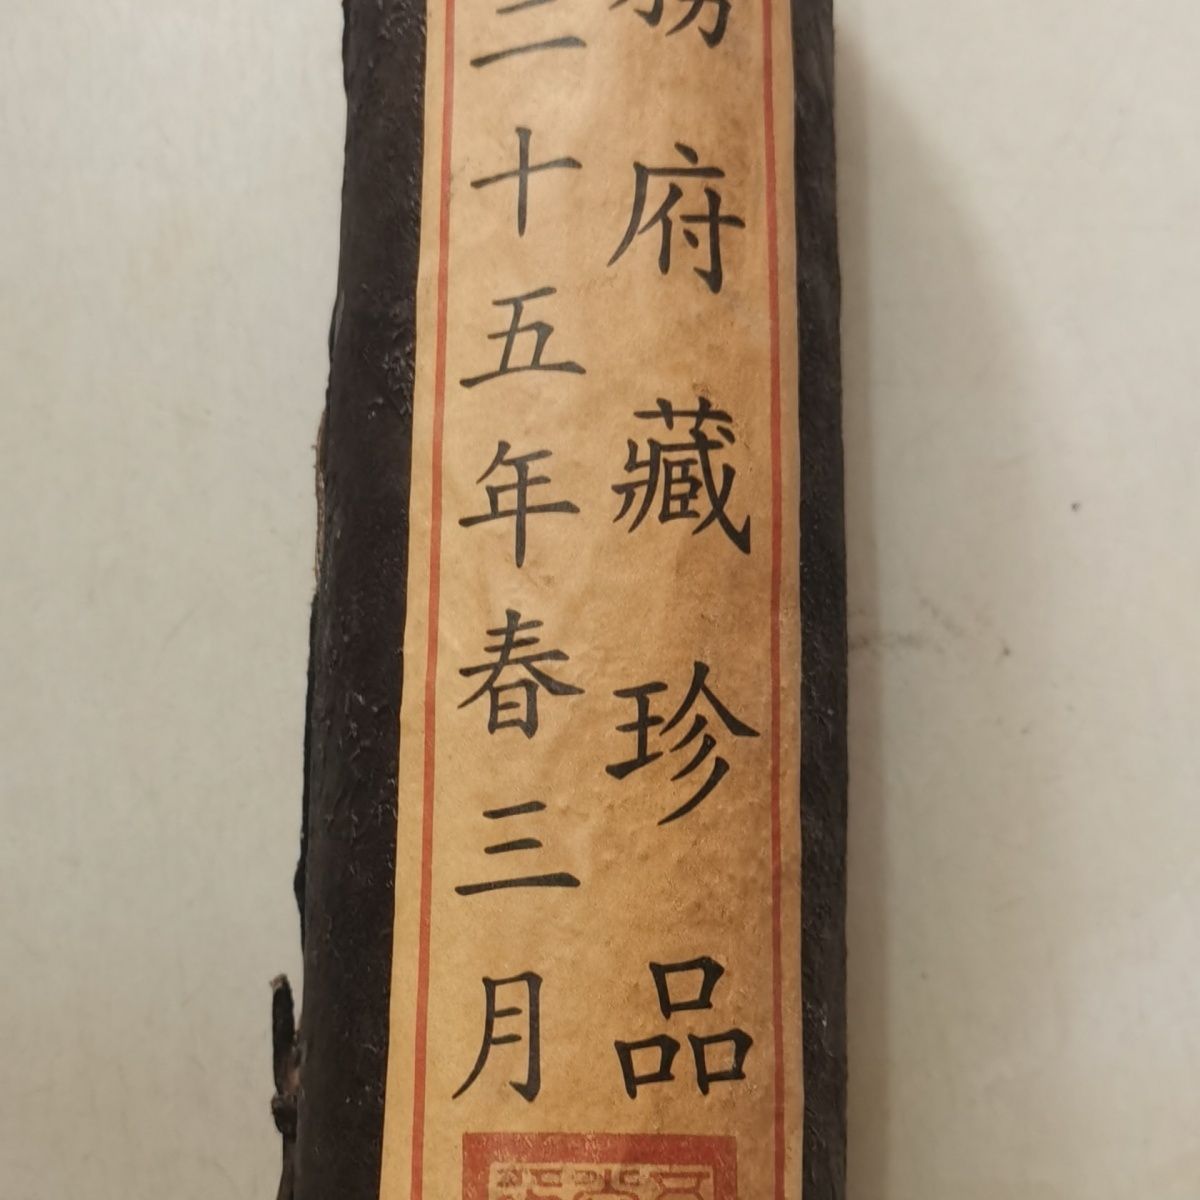 務府藏珍品
二十五年春三月